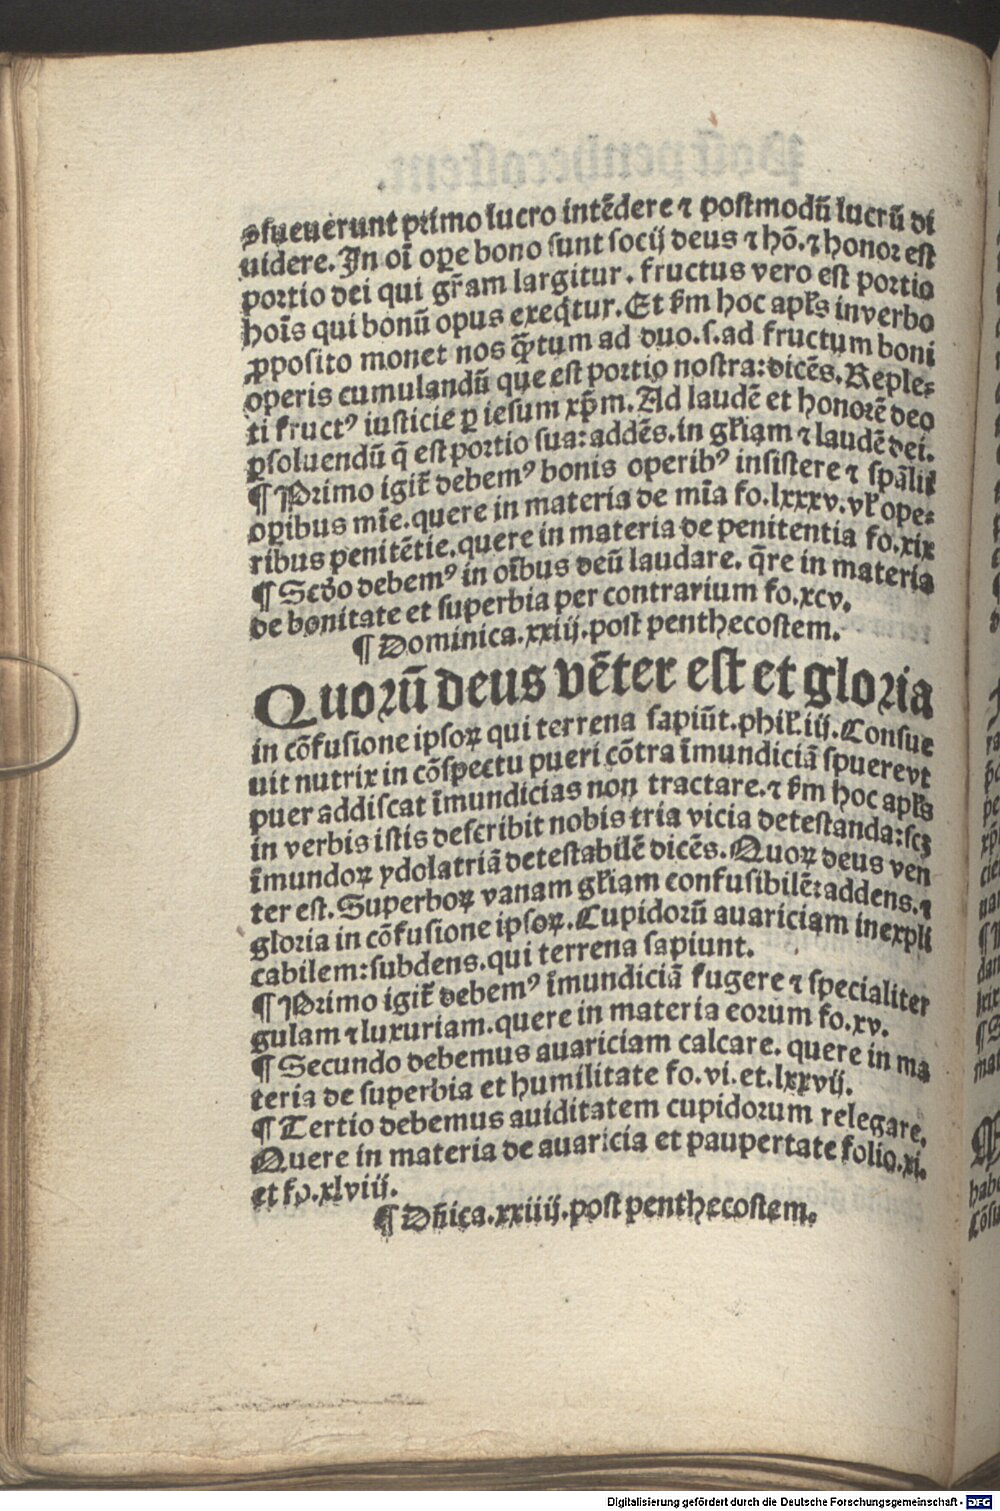 ꝯsueuerunt primo lucro intēdere ⁊ postmodū lucrū di
uidere. In oī oꝑe bono sunt socij deus ⁊ hō. ⁊ honor est
portio dei qui gr̄am largitur. fructus vero est portio
hoīs qui bonū opus exeq̄tur. Et ẜm hoc apl̄s in verbo
ꝓposito monet nos q̄ꝫtum ad duo. s. ad fructum boni
operis cumulandū que est portio nostra: dicēs. Reple-
ti fructꝰ iusticie ꝑ iesum xp̄m. Ad laudē et honorē deo
ꝑsoluendū q̄ est portio sua: addēs. in gl̄iam ⁊ laudē dei.
¶ Primo igit̄ debemꝰ bonis operibꝰ insistere ⁊ sp̄alit̄
oꝑibus mīe. quere in materia de mīa fo. lxxxv. vl̄ ope-
ribus penitētie. quere in materia de penitentia fo. xix
¶ Scd̄o debemꝰ in oībus deū laudare. q̄re in materia
de bonitate et superbia per contrarium fo. xcv.
¶ Dominica. xxiij. post penthecostem.
Quorū deus vēter est et gloria
in cōfusione ipsoꝝ qui terrena sapiūt. phil̄. iij. Consue
uit nutrix in cōspectu pueri cōtra īmundiciā spuere vt
puer addiscat īmundicias non tractare. ⁊ ẜm hoc apl̄s
in verbis istis describit nobis tria vicia detestanda: scꝫ
īmundoꝝ ydolatriā detestabilē dicēs. Quoꝝ deus ven
ter est. Superboꝝ vanam gl̄iam confusibilē: addens. ⁊
gloria in cōfusione ipsoꝝ. Cupidorū auariciam inexpli
cabilem: subdens. qui terrena sapiunt.
¶ Primo igit̄ debemꝰ īmundiciā fugere ⁊ specialiter
gulam ⁊ luxuriam. quere in materia eorum fo. xv.
¶ Secundo debemus auariciam calcare. quere in ma
teria de superbia et humilitate fo. vi. et. lxxvij.
¶ Tertio debemus auiditatem cupidorum relegare.
Quere in materia de auaricia et paupertate folio. xi.
et fo. xlviij.
¶ Dn̄ica. xxiiij. post penthecostem.
Digitalisierung gefördert durch die Deutsche Forschungsgemeinschaft - DFG